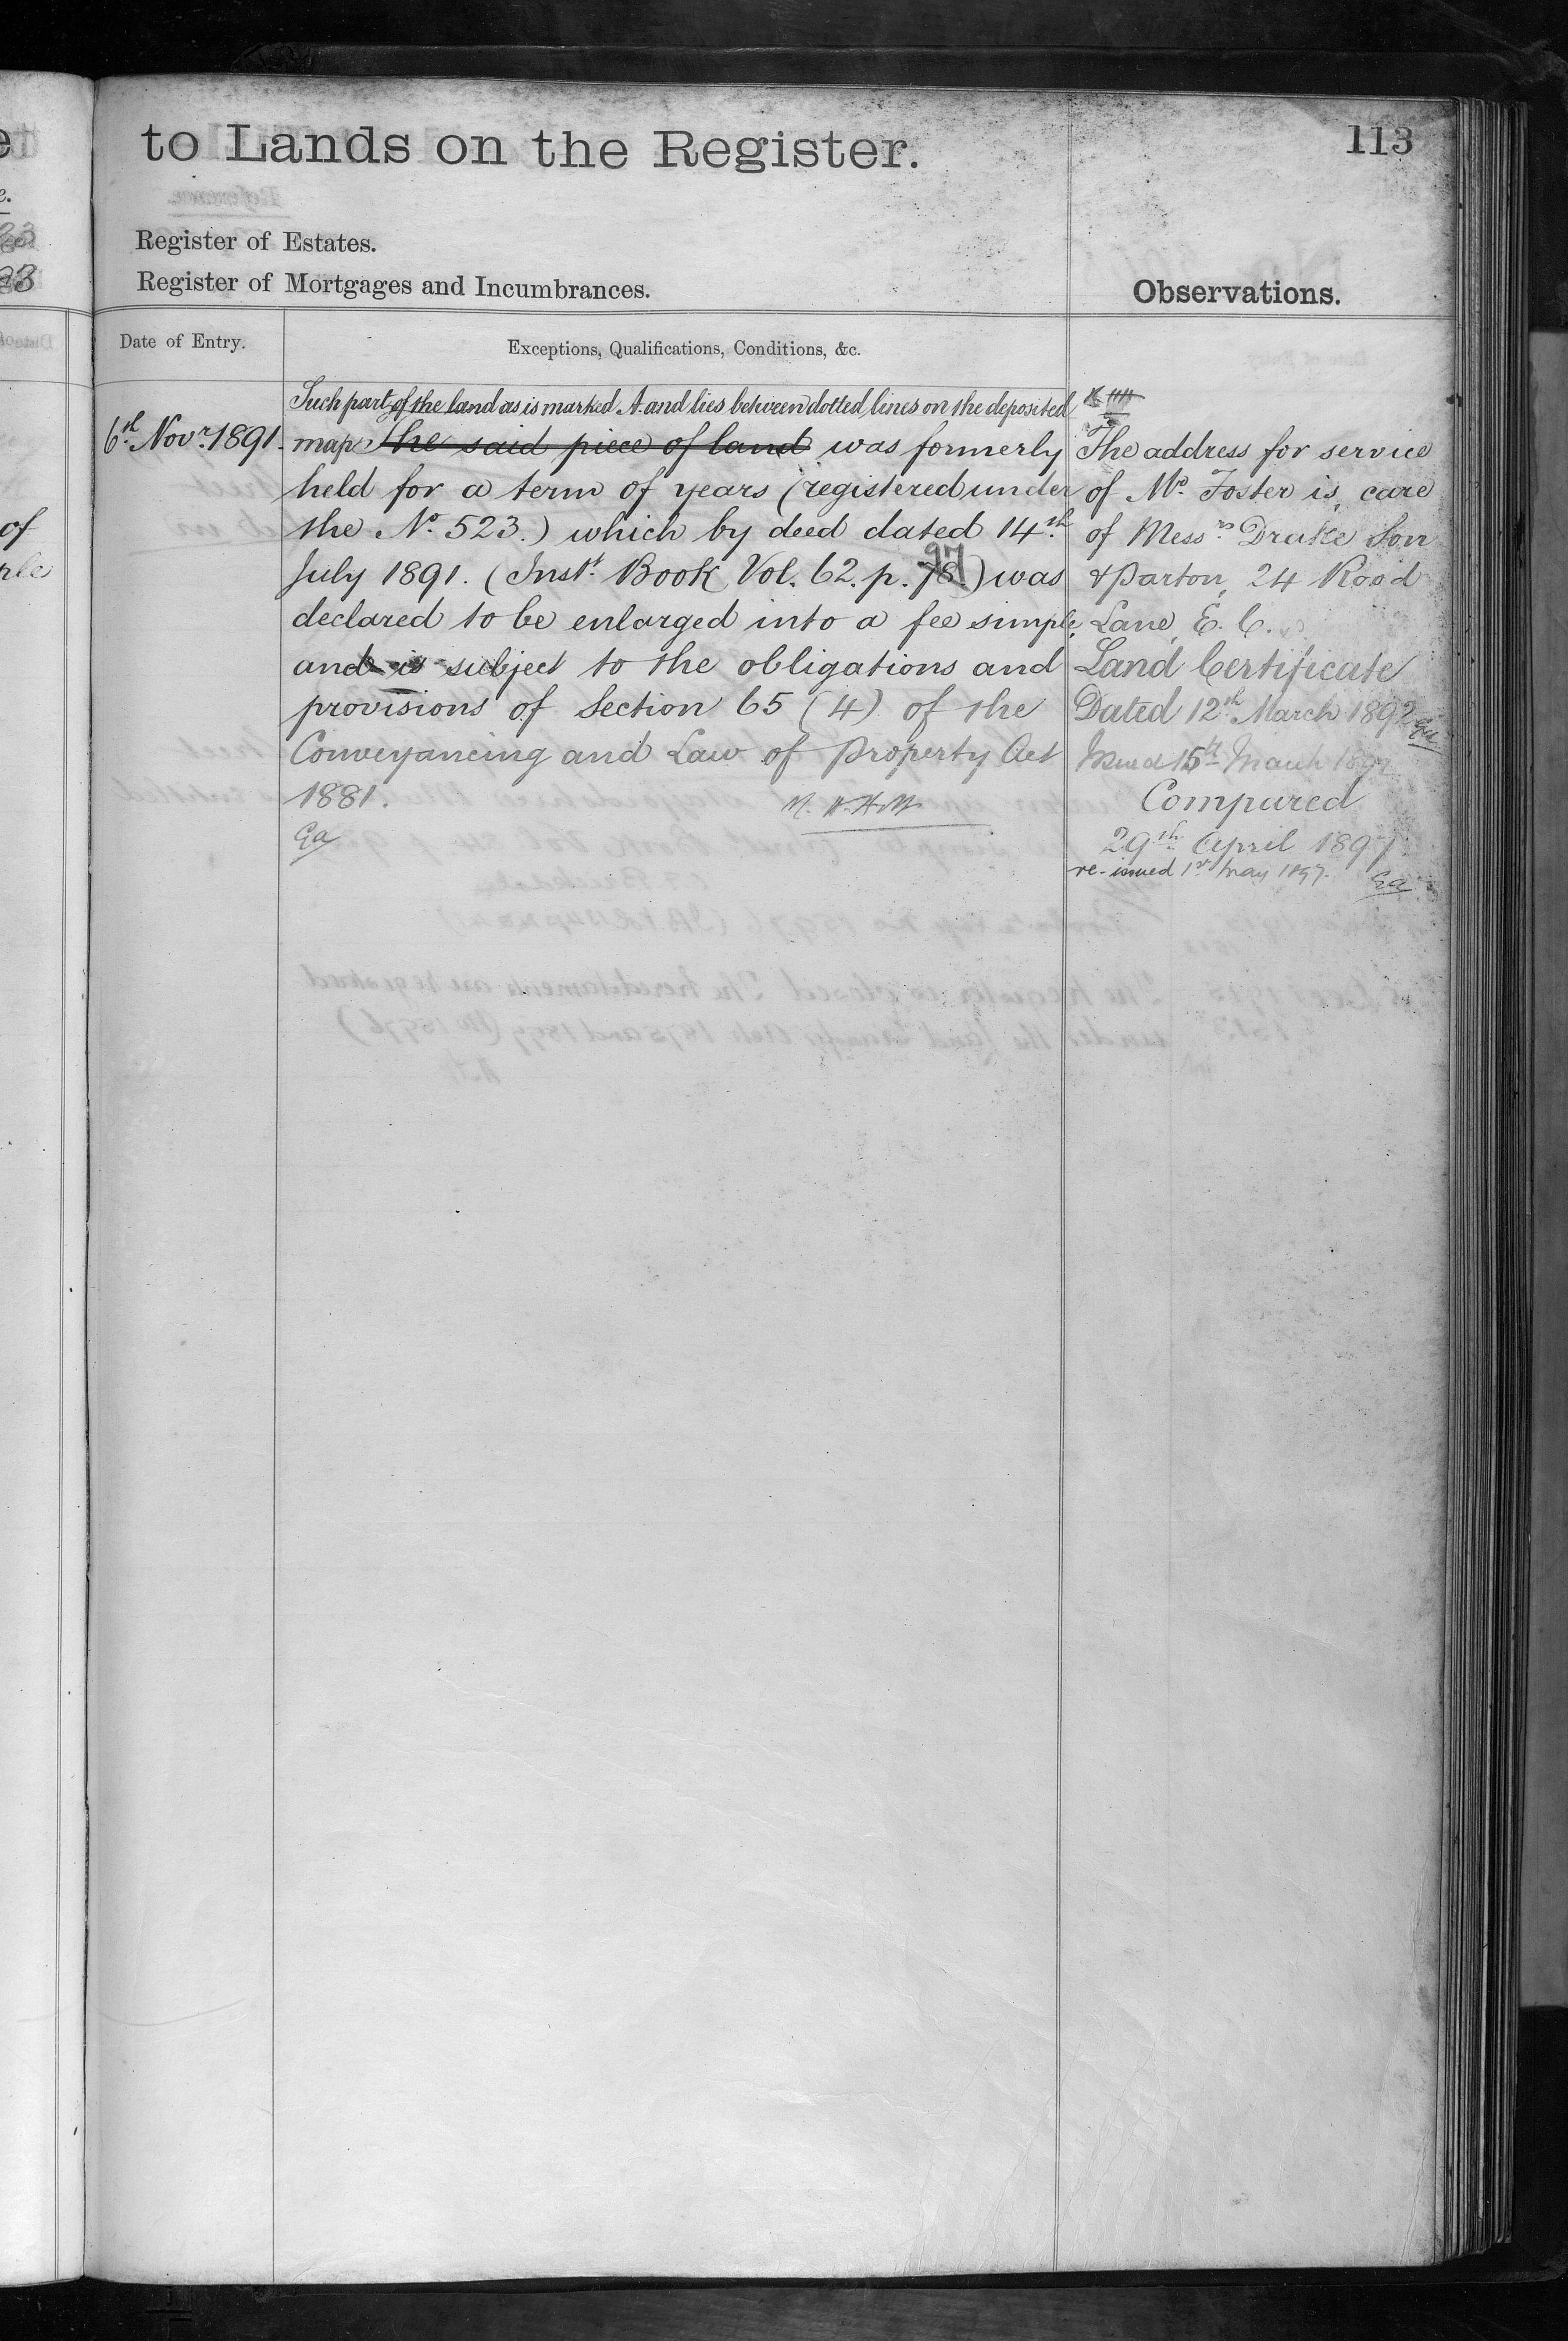 to Lands on the Register.
113
Register of Estates.
Register of Mortgages and Incumbrances.
Observations.
Date of Entry.
Exceptions, Qualifications, Conditions, &c.
6th Novr. 1891.
Such part of the land as is marked A. and lies between dotted lines on the deposited
map the said piece of land was formerly
held for a term of years (registered under
the No. 523.) which by deed dated 14th
July 1891. (Inst. Book Vol. 62. p. 78. 97) was
declared to be enlarged into a fee simple,
and is subject to the obligations and
provisions of Section 65 (4) of the
Conveyancing and Law of Property Act
1881.
Ga
The address for service
of Mr. Foster is, care
of Messrs. Drake Son
& Parton, 24 Rood
Lane, E. C.
Land Certificate
Dated 12th March 1892
Issued 15th March 1892
Compared
29th April 1897
re-issued 1st May 1897.
Ga